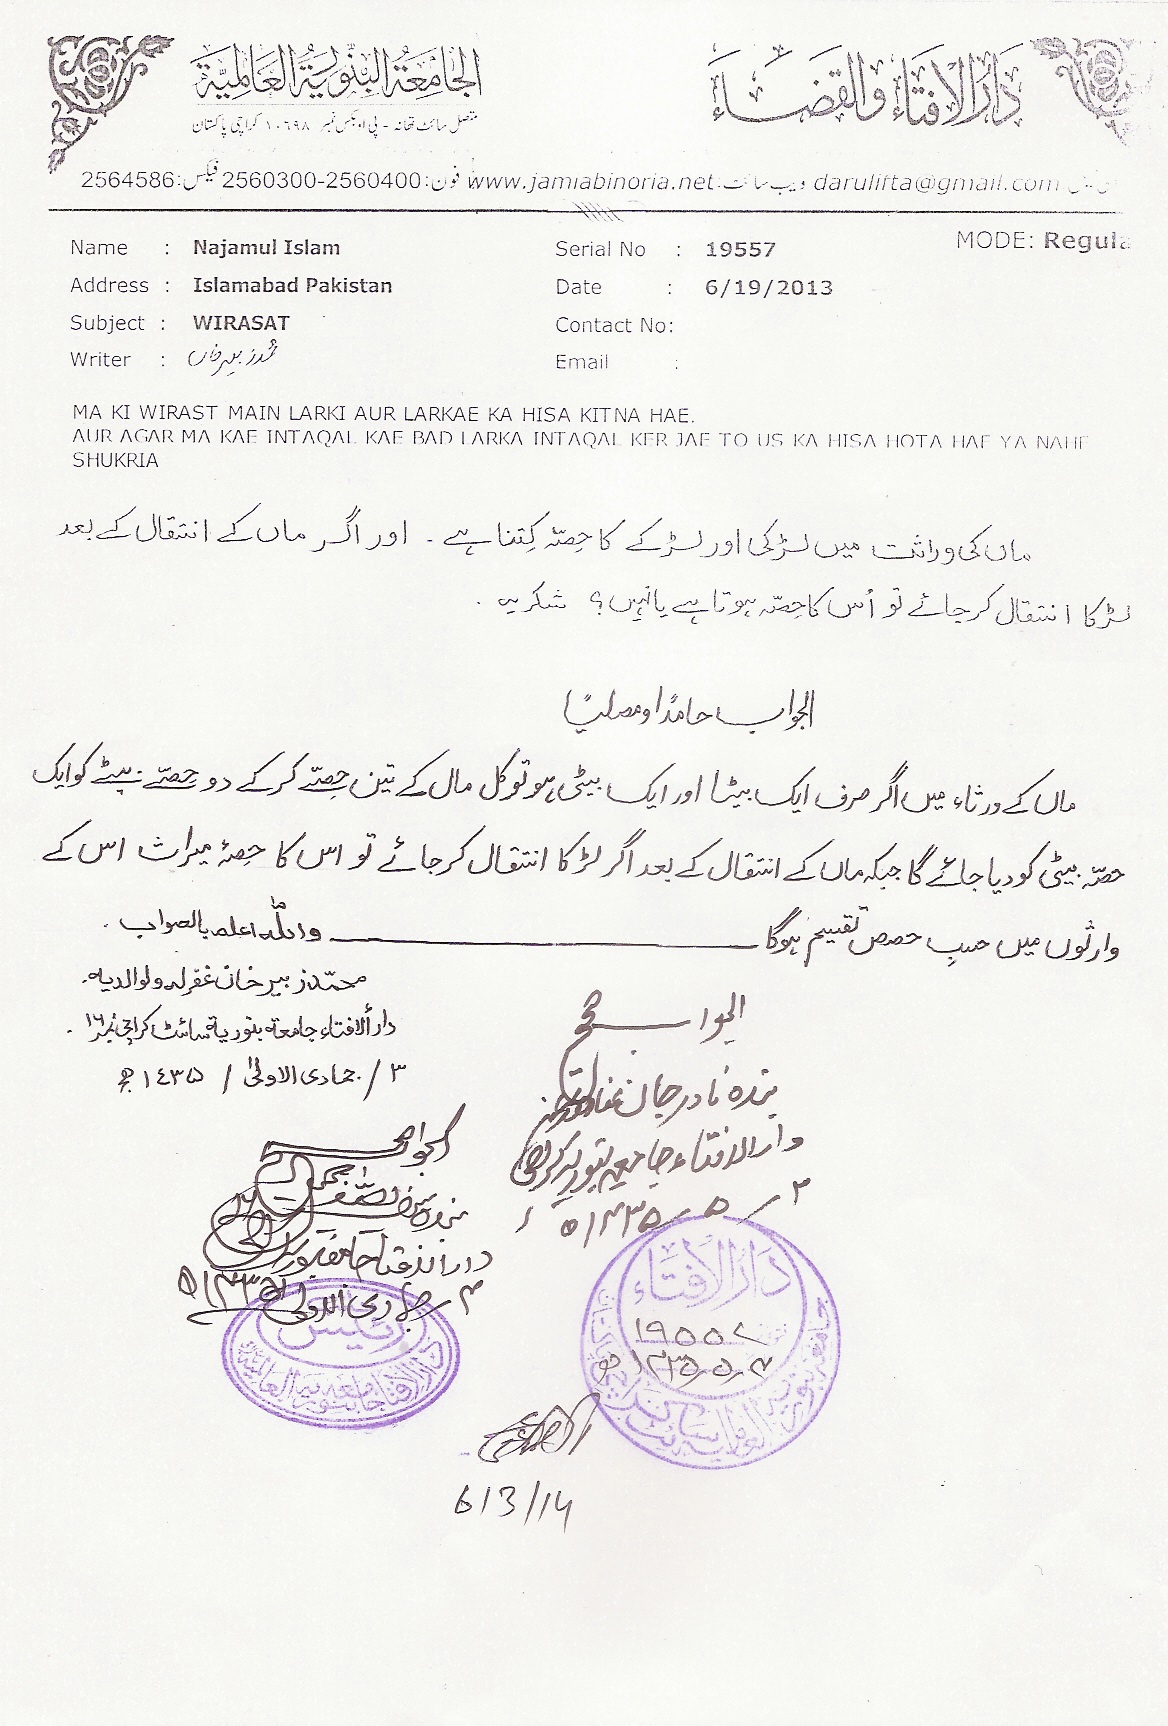 الجامعة البنورية العالمية
دار الافتاء والقضاء
متصل سائٹ تھانہ - پی او بکس نمبر ۱۰۶۹۸ کراچی پاکستان
darulifta@gmail.com ویب سائٹ: www.jamiabinoria.net فون: 2560300-2560400 فیکس: 2564586
MODE: Regula
Name : Najamul Islam
Serial No : 19557
Address : Islamabad Pakistan
Date : 6/19/2013
Subject : WIRASAT
Contact No:
Writer : محمد زبیر خان
Email :
MA KI WIRAST MAIN LARKI AUR LARKAE KA HISA KITNA HAE.
AUR AGAR MA KAE INTAQAL KAE BAD LARKA INTAQAL KER JAE TO US KA HISA HOTA HAE YA NAHE
SHUKRIA
ماں کی وراثت میں لڑکی اور لڑکے کا حِصّہ کِتنا ہے ۔ اور اگر ماں کے انتقال کے بعد
لڑکا انتقال کر جائے تو اُس کا حِصّہ ہوتا ہے یا نہیں؟ شکریہ ۔
الجواب حامدًا ومصلیًا
ماں کے ورثاء میں اگر صرف ایک بیٹا اور ایک بیٹی ہو تو کل مال کے تین حِصّے کر کے دو حِصّے بیٹے کو ایک
حصّہ بیٹی کو دیا جائے گا جبکہ ماں کے انتقال کے بعد اگر لڑکا انتقال کر جائے تو اس کا حصۂ میراث اس کے
وارثوں میں حسبِ حصص تقسیم ہوگا واللہ اعلم بالصواب ۔
محمّد زبیر خان غفرلہ ولوالدیہ۔
دار الافتاء جامعہ بنوریہ سائٹ کراچی نمبر ۱۶ ۔
۳ / جمادی الاولیٰ / ۱۴۳۵ ھ
الجواب صحیح
بندہ نادر جان
دار الافتاء جامعہ بنوریہ کراچی
۳ / ۵ / ۱۴۳۵ ھ
الجواب صحیح
دار الافتاء جامعہ بنوریہ
۳ جمادی الاولی ۱۴۳۵ھ
رئیس
دار الافتاء جامعہ بنوریہ العالمیہ
دار الافتاء
۱۹۵۵۷
6/3/14